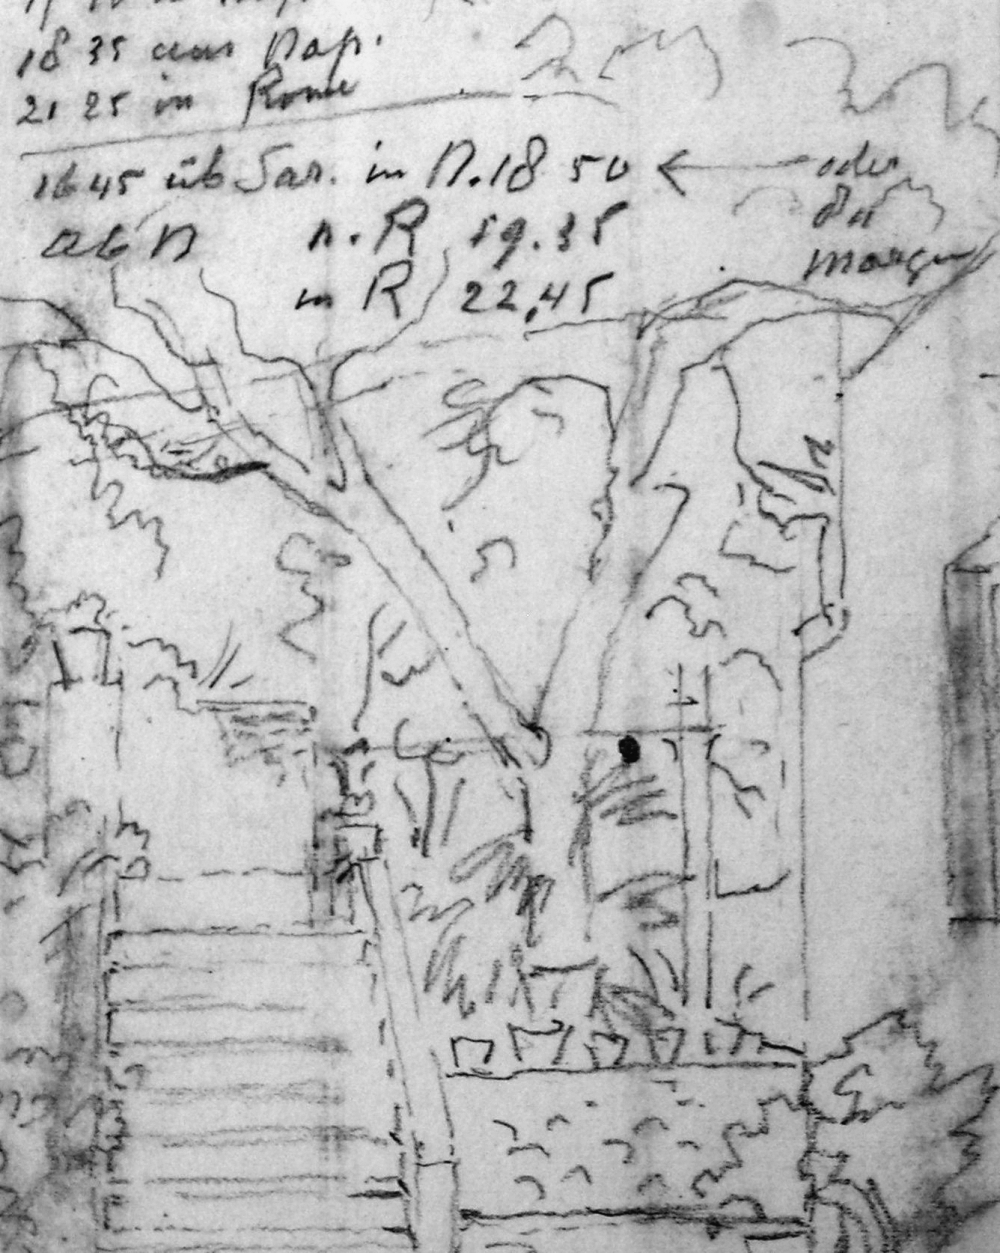 18 35 aus Nap.
21 25 in Rome
16 45 üb Sar. in N. 18 50 ← oder
ab N n. R 19.35
in R 22.45 morgen